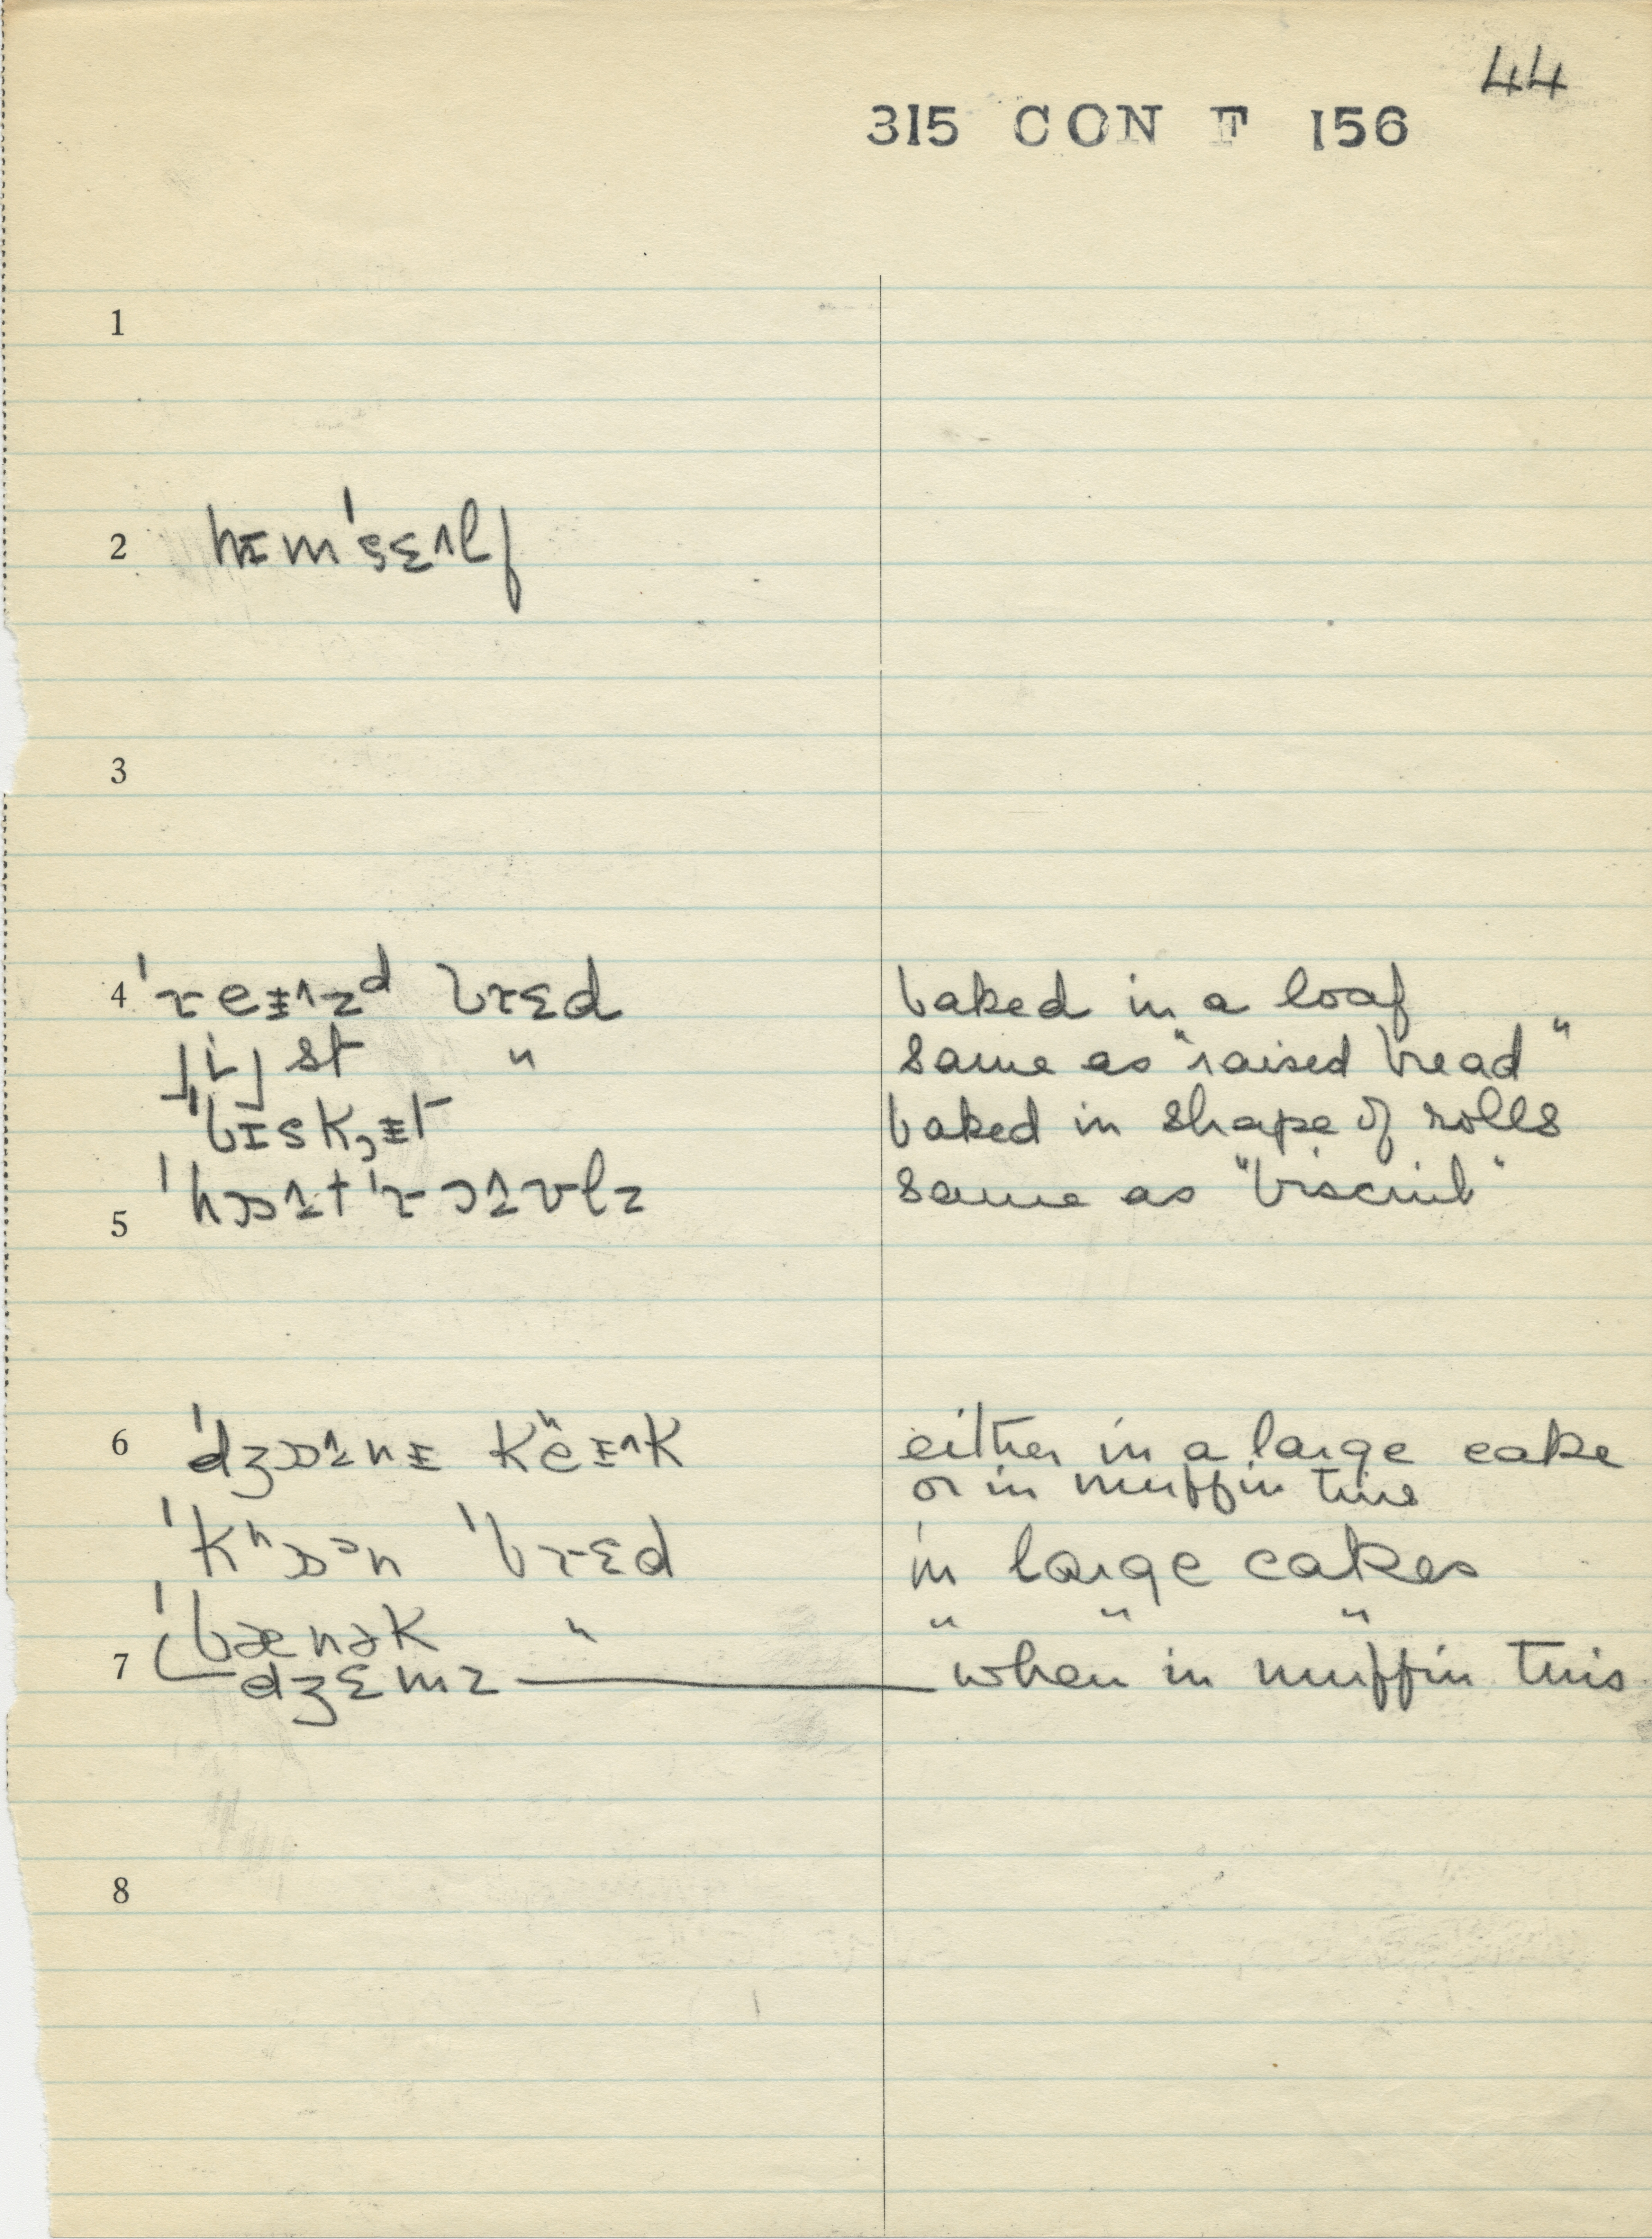 44
315 CON F 156
1
2 hɪm'sɛ˄lf
3
4 'reɪ˄zᵈ brɛd baked in a loaf
st " same as "raised bread"
'bɪsk,ɨt baked in shape of rolls
'hɒ˔t 'rɔ˔ʊlz same as "biscuit"
5
6 'dʒɒ˔nɪ kʰeɪ˄k either in a large cake
or in muffin tins
'kʰɒᵊn 'brɛd in large cakes
'bænək " " " "
7 dʒɛmz when in muffin tins
8